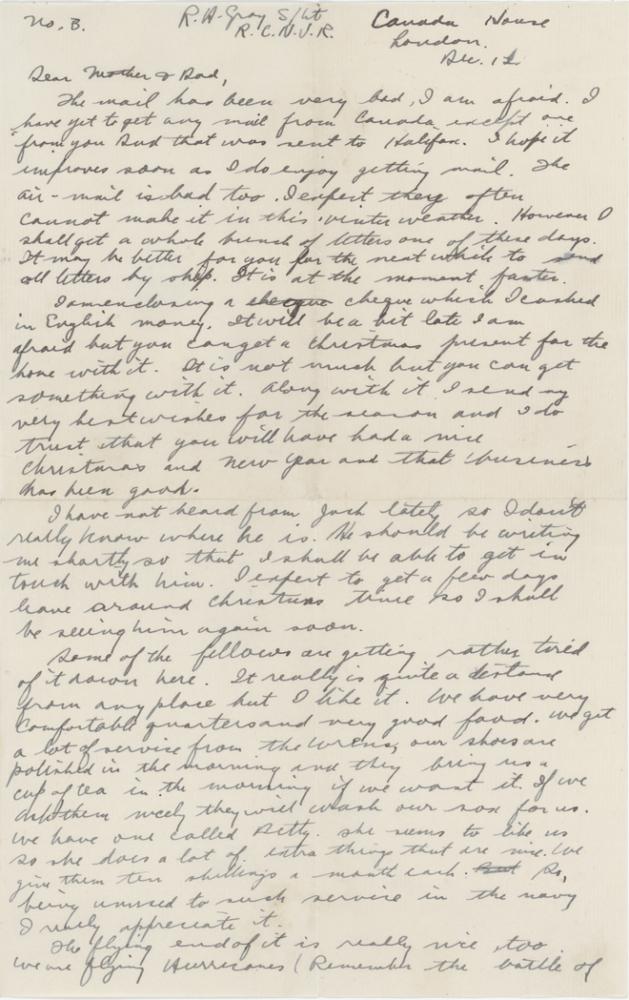 No. 3.
R.H. Gray S/Lt
R.C.N.V.R.
Canada House
London.
Dec. 12
Dear Mother & Dad,
The mail has been very bad, I am afraid. I
have yet to get any mail from Canada except one
from you and that was sent to Halifax. I hope it
improves soon as I do enjoy getting mail. The
air-mail is bad too. I expect they often
cannot make it in this winter weather. However I
shall get a whole bunch of letters one of these days.
It may be better for you for the next while to send
all letters by ship. It is at the moment faster.
I am enclosing a cheque which I cashed
in English money. It will be a bit late I am
afraid but you can get a Christmas present for the
home with it. It is not much but you can get
something with it. Along with it I send my
very best wishes for the season and I do
trust that you will have had a nice
Christmas and New Year and that business
has been good.
I have not heard from Jack lately so I don't
really know where he is. He should be writing
me shortly so that I shall be able to get in
touch with him. I expect to get a few days
leave around Christmas time so I shall
be seeing him again soon.
Some of the fellows are getting rather tired
of it down here. It really is quite a distance
from any place but I like it. We have very
comfortable quarters and very good food. We get
a lot of service from the Wrens, our shoes are
polished in the morning and they bring us a
cup of tea in the morning if we want it. If we
ask them nicely they will wash our sox for us.
We have one called Betty. She seems to like us
so she does a lot of extra things that are nice. We
give them ten shillings a month each. So,
being unused to such service in the navy
I really appreciate it.
The flying end of it is really nice too.
We are flying Hurricanes (Remember the battle of